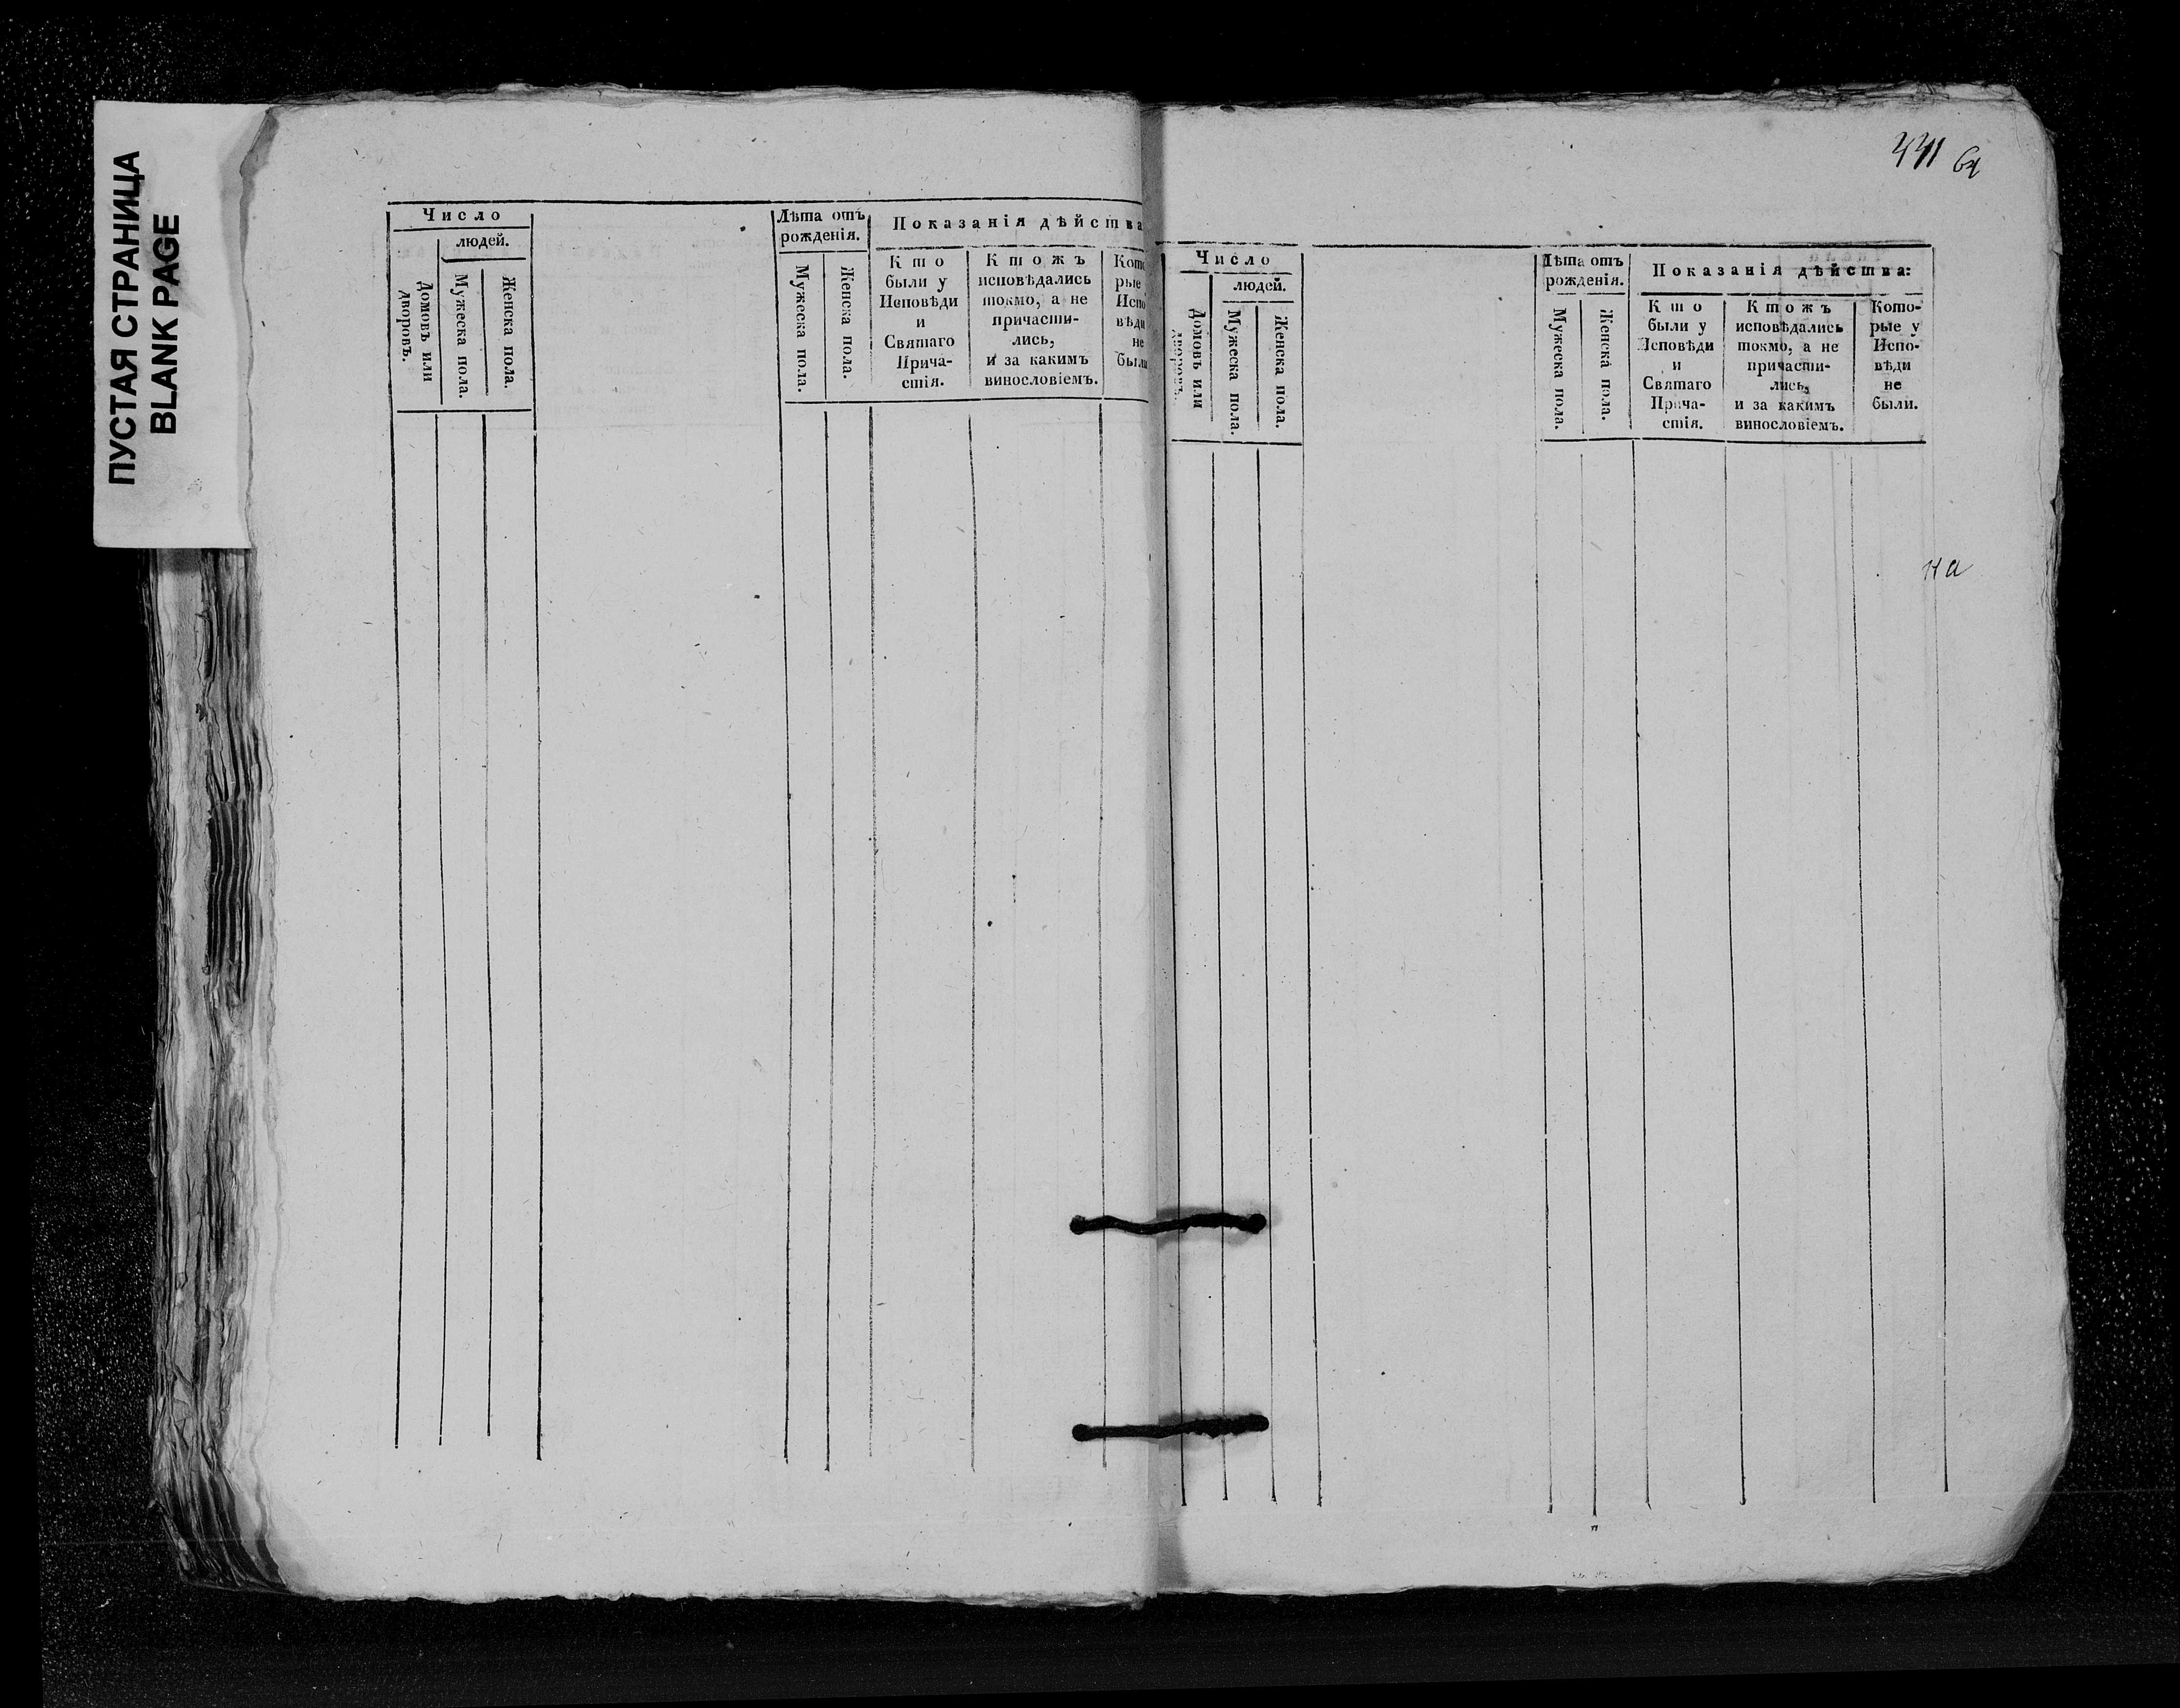 ПУСТАЯ СТРАНИЦА
BLANK PAGE
Число
людей.
Домовъ или
дворовъ.
Мужеска пола.
Женска пола.
Лѣта отъ
рожденія.
Мужеска пола.
Женска пола.
Показанія дѣйства
Кто
были у
Исповѣди
и
Святаго
Прича-
стія.
Ктожъ
исповѣдались
токмо, а не
причасти-
лись,
и за какимъ
винословіемъ.
Кото
рые
Испо
вѣди
не
были
441 64
Число
людей.
Домовъ или
дворовъ.
Мужеска пола.
Женска пола.
Лѣта отъ
рожденія.
Мужеска пола.
Женска пола.
Показанія дѣйства:
Кто
были у
Исповѣди
и
Святаго
Прича-
стія.
Ктожъ
исповѣдались
токмо, а не
причасти-
лись,
и за какимъ
винословіемъ.
Кото-
рые у
Испо-
вѣди
не
были.
на